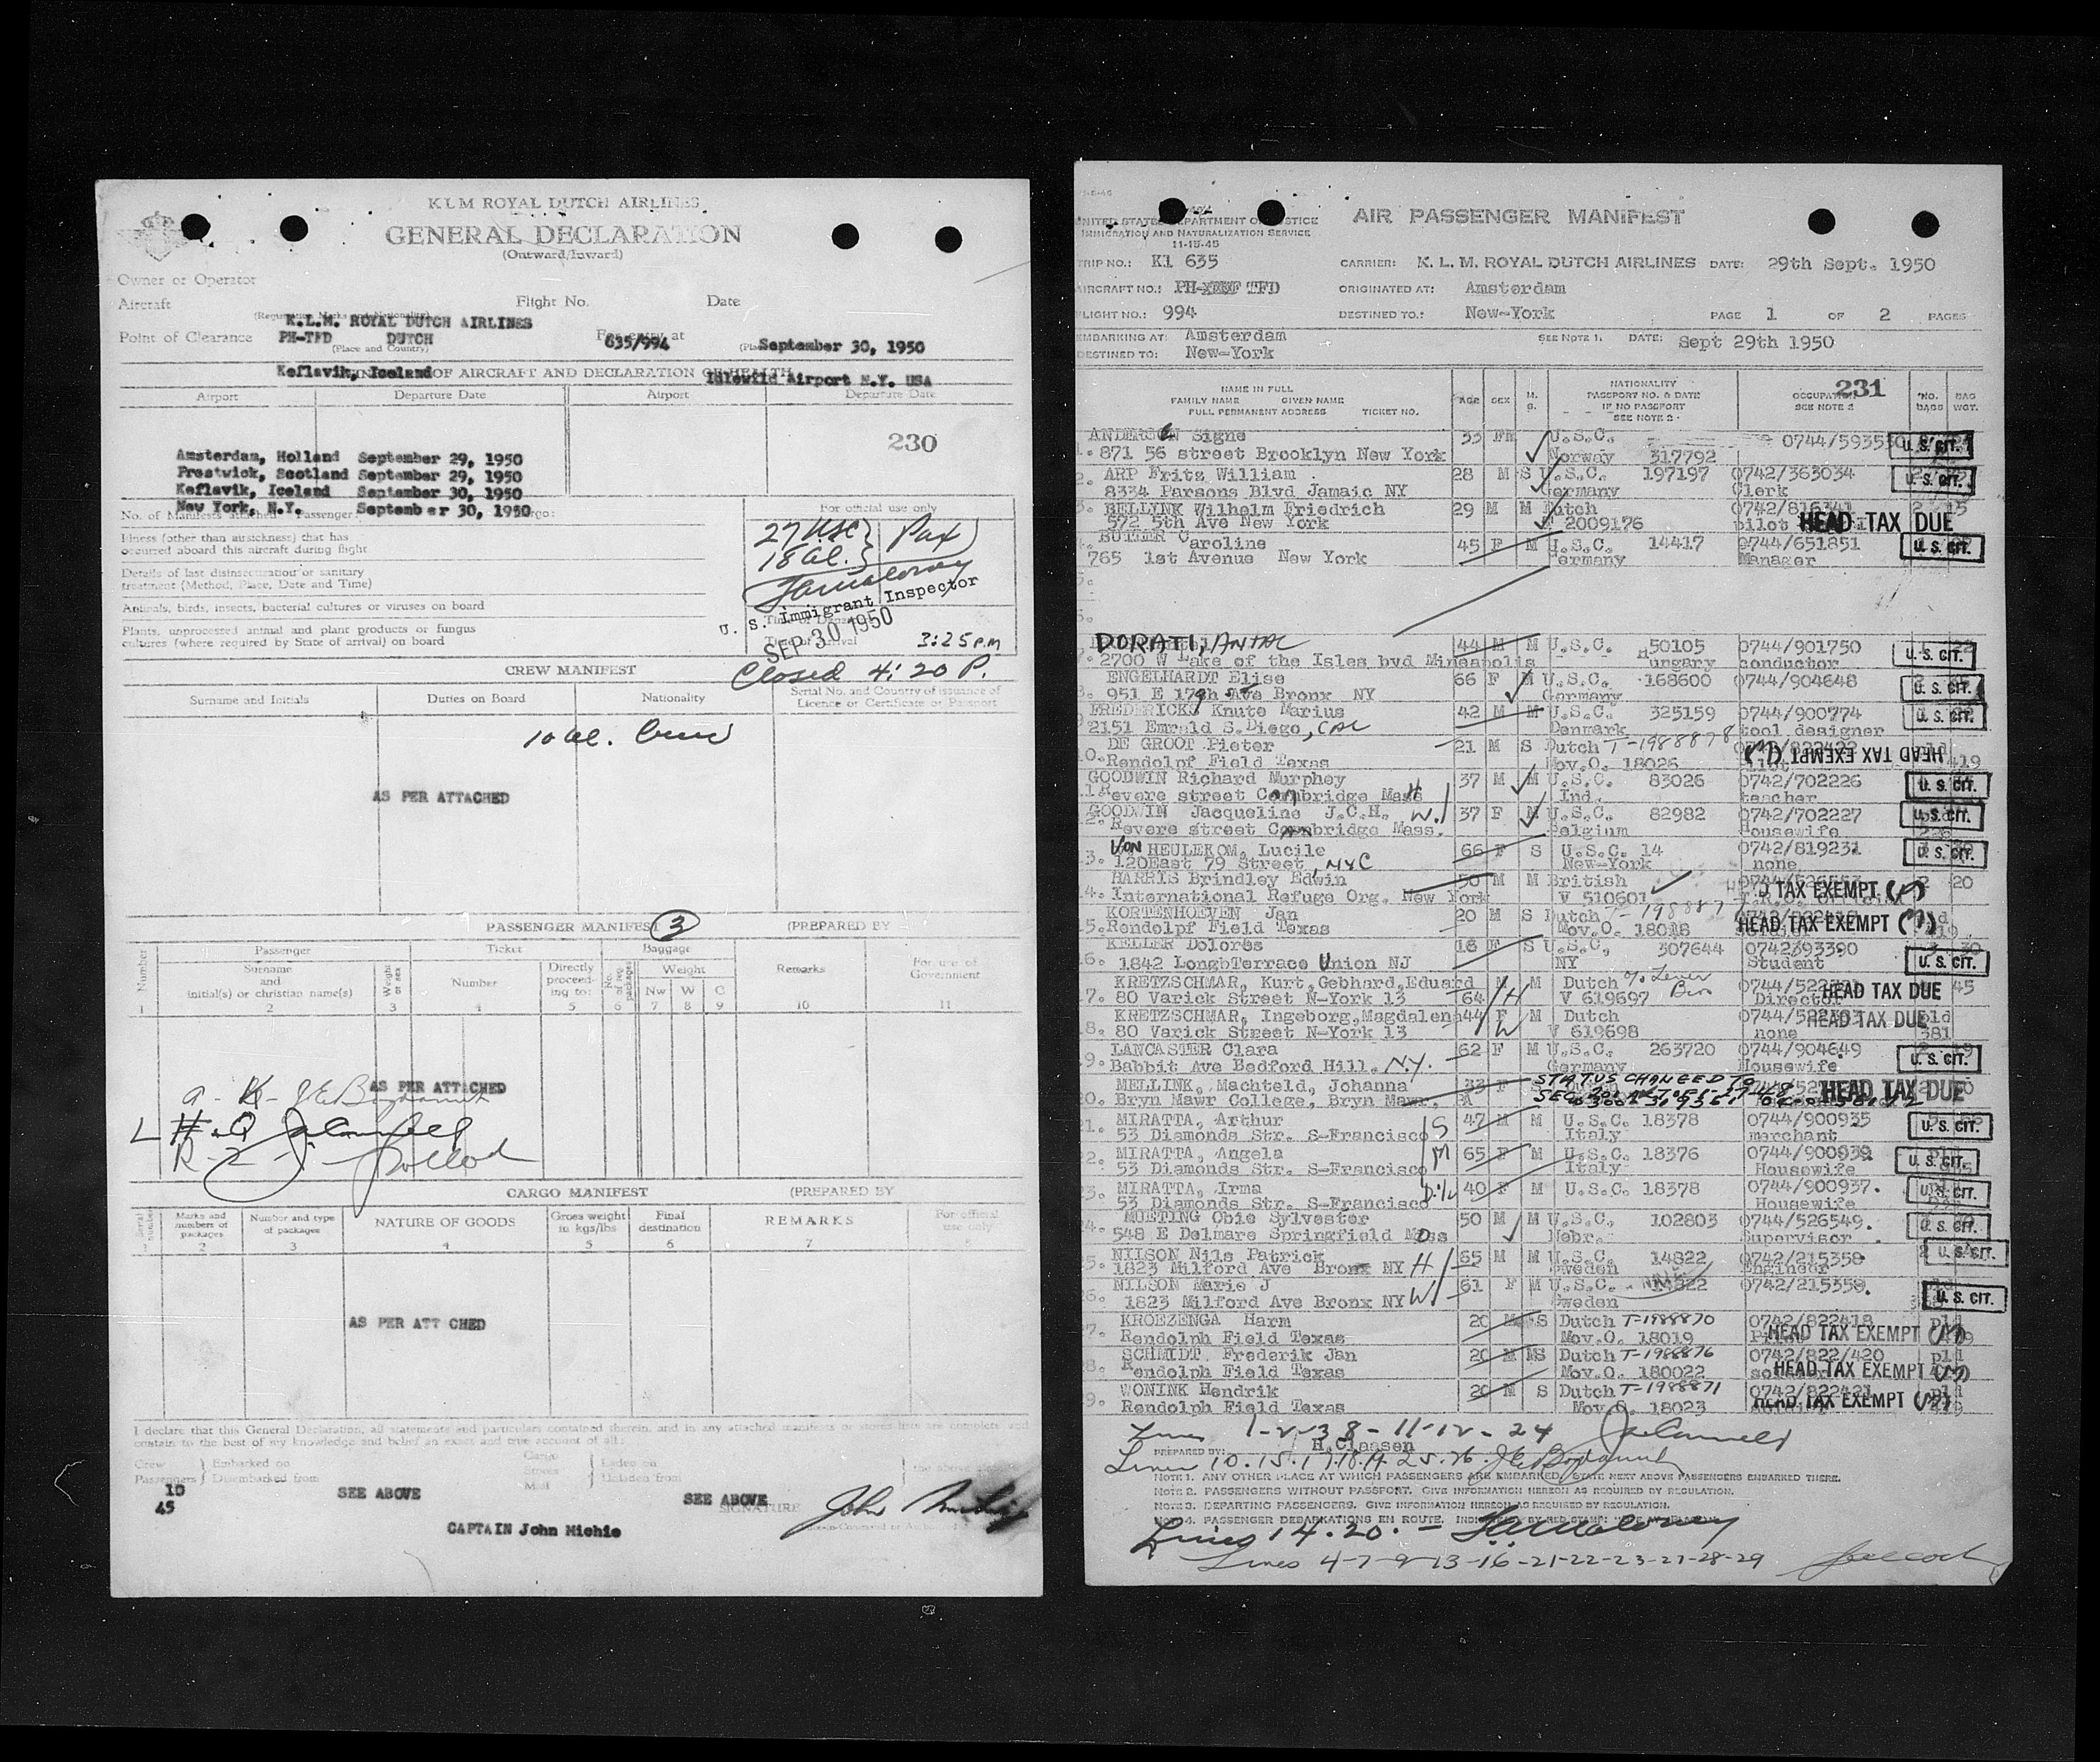 KLM ROYAL DUTCH AIRLINES
GENERAL DECLARATION
(Outward/Inward)
Owner or Operator
Aircraft Flight No. Date
(Registration Marks and Nationality)
K.L.M. ROYAL DUTCH AIRLINES
Point of Clearance PH-TFD DUTCH For entry at 635/994 September 30, 1950
(Place and Country)
Keflavik, Iceland OF AIRCRAFT AND DECLARATION OF HEALTH Idlewild Airport N.Y. USA
Airport Departure Date Airport Departure Date
230
Amsterdam, Holland September 29, 1950
Prestwick, Scotland September 29, 1950
Keflavik, Iceland September 30, 1950
New York, N.Y. September 30, 1950
No. of Manifests attached: Passenger: Cargo:
For official use only
27 USC } Pax
18 Al. }
Illness (other than airsickness) that has
occurred aboard this aircraft during flight
Details of last disinsectization or sanitary
treatment (Method, Place, Date and Time)
U. S. Immigrant Inspector
Animals, birds, insects, bacterial cultures or viruses on board
SEP 30 1950
Plants, unprocessed animal and plant products or fungus
cultures (where required by State of arrival) on board
Time of Arrival 3:25 P.M
Closed 4:20 P.
CREW MANIFEST
Surname and Initials Duties on Board Nationality Serial No. and Country of issuance of
Licence or Certificate or Passport
10 al. Crew
AS PER ATTACHED
PASSENGER MANIFEST 3 (PREPARED BY
Number Passenger Ticket Baggage Remarks For use of
Government
Surname
and
initial(s) or christian name(s)
Weight or sex Number Directly
proceed-
ing to: No. of packages Weight
Nw W C
1 2 3 4 5 6 7 8 9 10 11
AS PER ATTACHED
CARGO MANIFEST (PREPARED BY
Marks and
numbers of
packages Number and type
of packages NATURE OF GOODS Gross weight
in kgs/lbs Final
destination REMARKS For official
use only
1 2 3 4 5 6 7 8
AS PER ATT CHED
I declare that this General Declaration, all statements and particulars contained therein, and in any attached manifests or stores lists are complete and
contain to the best of my knowledge and belief an exact and true account of all:
Crew Embarked on Cargo Laden on
Passengers Disembarked from Stores Unladen from
Mail
the above
10
45
SEE ABOVE
SEE ABOVE
SIGNATURE
CAPTAIN John Michie
UNITED STATES DEPARTMENT OF JUSTICE
IMMIGRATION AND NATURALIZATION SERVICE
11-15-45
AIR PASSENGER MANIFEST
TRIP NO.: Kl 635 CARRIER: K. L. M. ROYAL DUTCH AIRLINES DATE: 29th Sept. 1950
AIRCRAFT NO.: PH-TFD ORIGINATED AT: Amsterdam
FLIGHT NO.: 994 DESTINED TO.: New-York PAGE 1 OF 2 PAGES
EMBARKING AT: Amsterdam SEE NOTE 1. DATE: Sept 29th 1950
DESTINED TO: New-York
231
NAME IN FULL
FAMILY NAME GIVEN NAME
FULL PERMANENT ADDRESS TICKET NO.
AGE SEX M. S. NATIONALITY
PASSPORT NO. & DATE
IF NO PASSPORT
SEE NOTE 2 OCCUPATION
SEE NOTE 3 NO.
BAGS BAG
WGT.
ANDERSEN Signe 33 FM U.S.C. 0744/593550 U. S. CIT.
1. 871 56 street Brooklyn New York Norway 317792
ARP Fritz William 28 M S U.S.C. 197197 0742/363034 U. S. CIT.
2. 8334 Parsons Blvd Jamaic NY Germany Clerk
3. BELLYNK Wilhelm Friedrich 29 M M Dutch 0742/816341 2 15
572 5th Ave New York 2009176 pilot HEAD TAX DUE
BUTLER Caroline 45 F M U.S.C. 14417 0744/651851 U. S. CIT.
765 1st Avenue New York Germany Manager
5.
DORATI, ANTAL 44 M M U.S.C. 50105 0744/901750 22 U. S. CIT.
7. 2700 W Lake of the Isles bvd Mineapolis Hungary conductor
ENGELHARDT Elise 66 F M U.S.C. 168600 0744/904648 U. S. CIT.
8. 951 E 179h Bronx NY Germany
FREDERICKS Knute Marius 42 M M U.S.C. 325159 0744/900774 U. S. CIT.
2151 Emrald S.Diego, CAL Denmark tool designer
DE GROOT Pieter 21 M S Dutch T-1988878 HEAD TAX EXEMPT
0. Rendolpf Field Texas Mov.O. 18026 419
GOODWIN Richard Murphey 37 M M U.S.C. 83026 0742/702226 U. S. CIT.
1. Revere street Cambridge Mass Ind. teacher
GOODWIN Jacqueline J.C.H. W. 37 F M U.S.C. 82982 0742/702227 U. S. CIT.
2. Revere street Cambridge Mass. Belgium Housewife
3. VON HEULEKOM, Lucile 66 F S U.S.C. 14 0742/819231 U. S. CIT.
120East 79 Street, NYC New-York none
HARRIS Brindley Edwin 50 M M British 2 20
4. International Refuge Org. New York V 510601 HEAD TAX EXEMPT
KORTENHOEVEN Jan 20 M S Dutch
5. Rendolpf Field Texas Mov.O. 18018 HEAD TAX EXEMPT
KELLER Dolores 18 F S U.S.C. 307644 0742393390 U. S. CIT.
6. 1842 LongbTerrace Union NJ NY Student
KRETZSCHMAR, Kurt,Gebhard,Eduard M M Dutch % Lever Bros 45
7. 80 Varick Street N-York 13 64 H V 619697 Director HEAD TAX DUE
KRETZSCHMAR, Ingeborg,Magdalena 44 F M Dutch pld
8. 80 Varick Street N-York 13 W V 619698 none HEAD TAX DUE 381
LANCASTER Clara 62 F M U.S.C. 263720 0744/904649 U. S. CIT.
9. Babbit Ave Bedford Hill. N.Y. Germany Housewife
MELLINK, Machteld, Johanna 33 F S STATUS CHANGED TO HEAD TAX DUE
20. Bryn Mawr College, Bryn Mawr, PA
21. MIRATTA, Arthur S 47 M M U.S.C. 18378 0744/900935 U. S. CIT.
53 Diamonds Str. S-Francisco Italy merchant
22. MIRATTA, Angela M 65 F M U.S.C. 18376 0744/900939 U. S. CIT.
53 Diamonds Str. S-Francisco Italy Housewife
23. MIRATTA, Irma 40 F M U.S.C. 18378 0744/900937. U. S. CIT.
53 Diamonds Str. S-Francisco Housewife
MOETING Obie Sylvester 50 M M U.S.C. 102803 0744/526549. U. S. CIT.
24. 548 E Delmare Springfield Mo Nebr. Supervisor
NILSON Nils Patrick H 65 M M U.S.C. 14822 0742/215358 2 U. S. CIT.
25. 1823 Milford Ave Bronx NY Sweden Engineer
NILSON Marie J W 61 F M U.S.C. 14822 0742/215359. U. S. CIT.
26. 1823 Milford Ave Bronx NY Sweden
KROEZENGA Harm 20 M S Dutch T-1988870 0742/822418 pld
27. Rendolph Field Texas Mov.O. 18019 HEAD TAX EXEMPT
SCHMIDT Frederik Jan 20 M MS Dutch T-1988876 0742/822/420 pld
28. Rendolph Field Texas Mov.O. 180022 HEAD TAX EXEMPT
WONINK Hendrik 20 M S Dutch T-1988871 0742/822421 pld
29. Rendolph Field Texas Mov.O. 18023 HEAD TAX EXEMPT
Lines 1-2-3 8-11-12-24
PREPARED BY: H.Claasen
Lines 10.15.17.18.19.25.26.
NOTE 1. ANY OTHER PLACE AT WHICH PASSENGERS ARE EMBARKED, STATE NEXT ABOVE PASSENGERS EMBARKED THERE.
NOTE 2. PASSENGERS WITHOUT PASSPORT. GIVE INFORMATION HEREON AS REQUIRED BY REGULATION.
NOTE 3. DEPARTING PASSENGERS. GIVE INFORMATION HEREON AS REQUIRED BY REGULATION.
NOTE 4. PASSENGER DEBARKATIONS EN ROUTE.
Lines 14.20.-
Lines 4-7-9-13-16-21-22-23-27-28-29